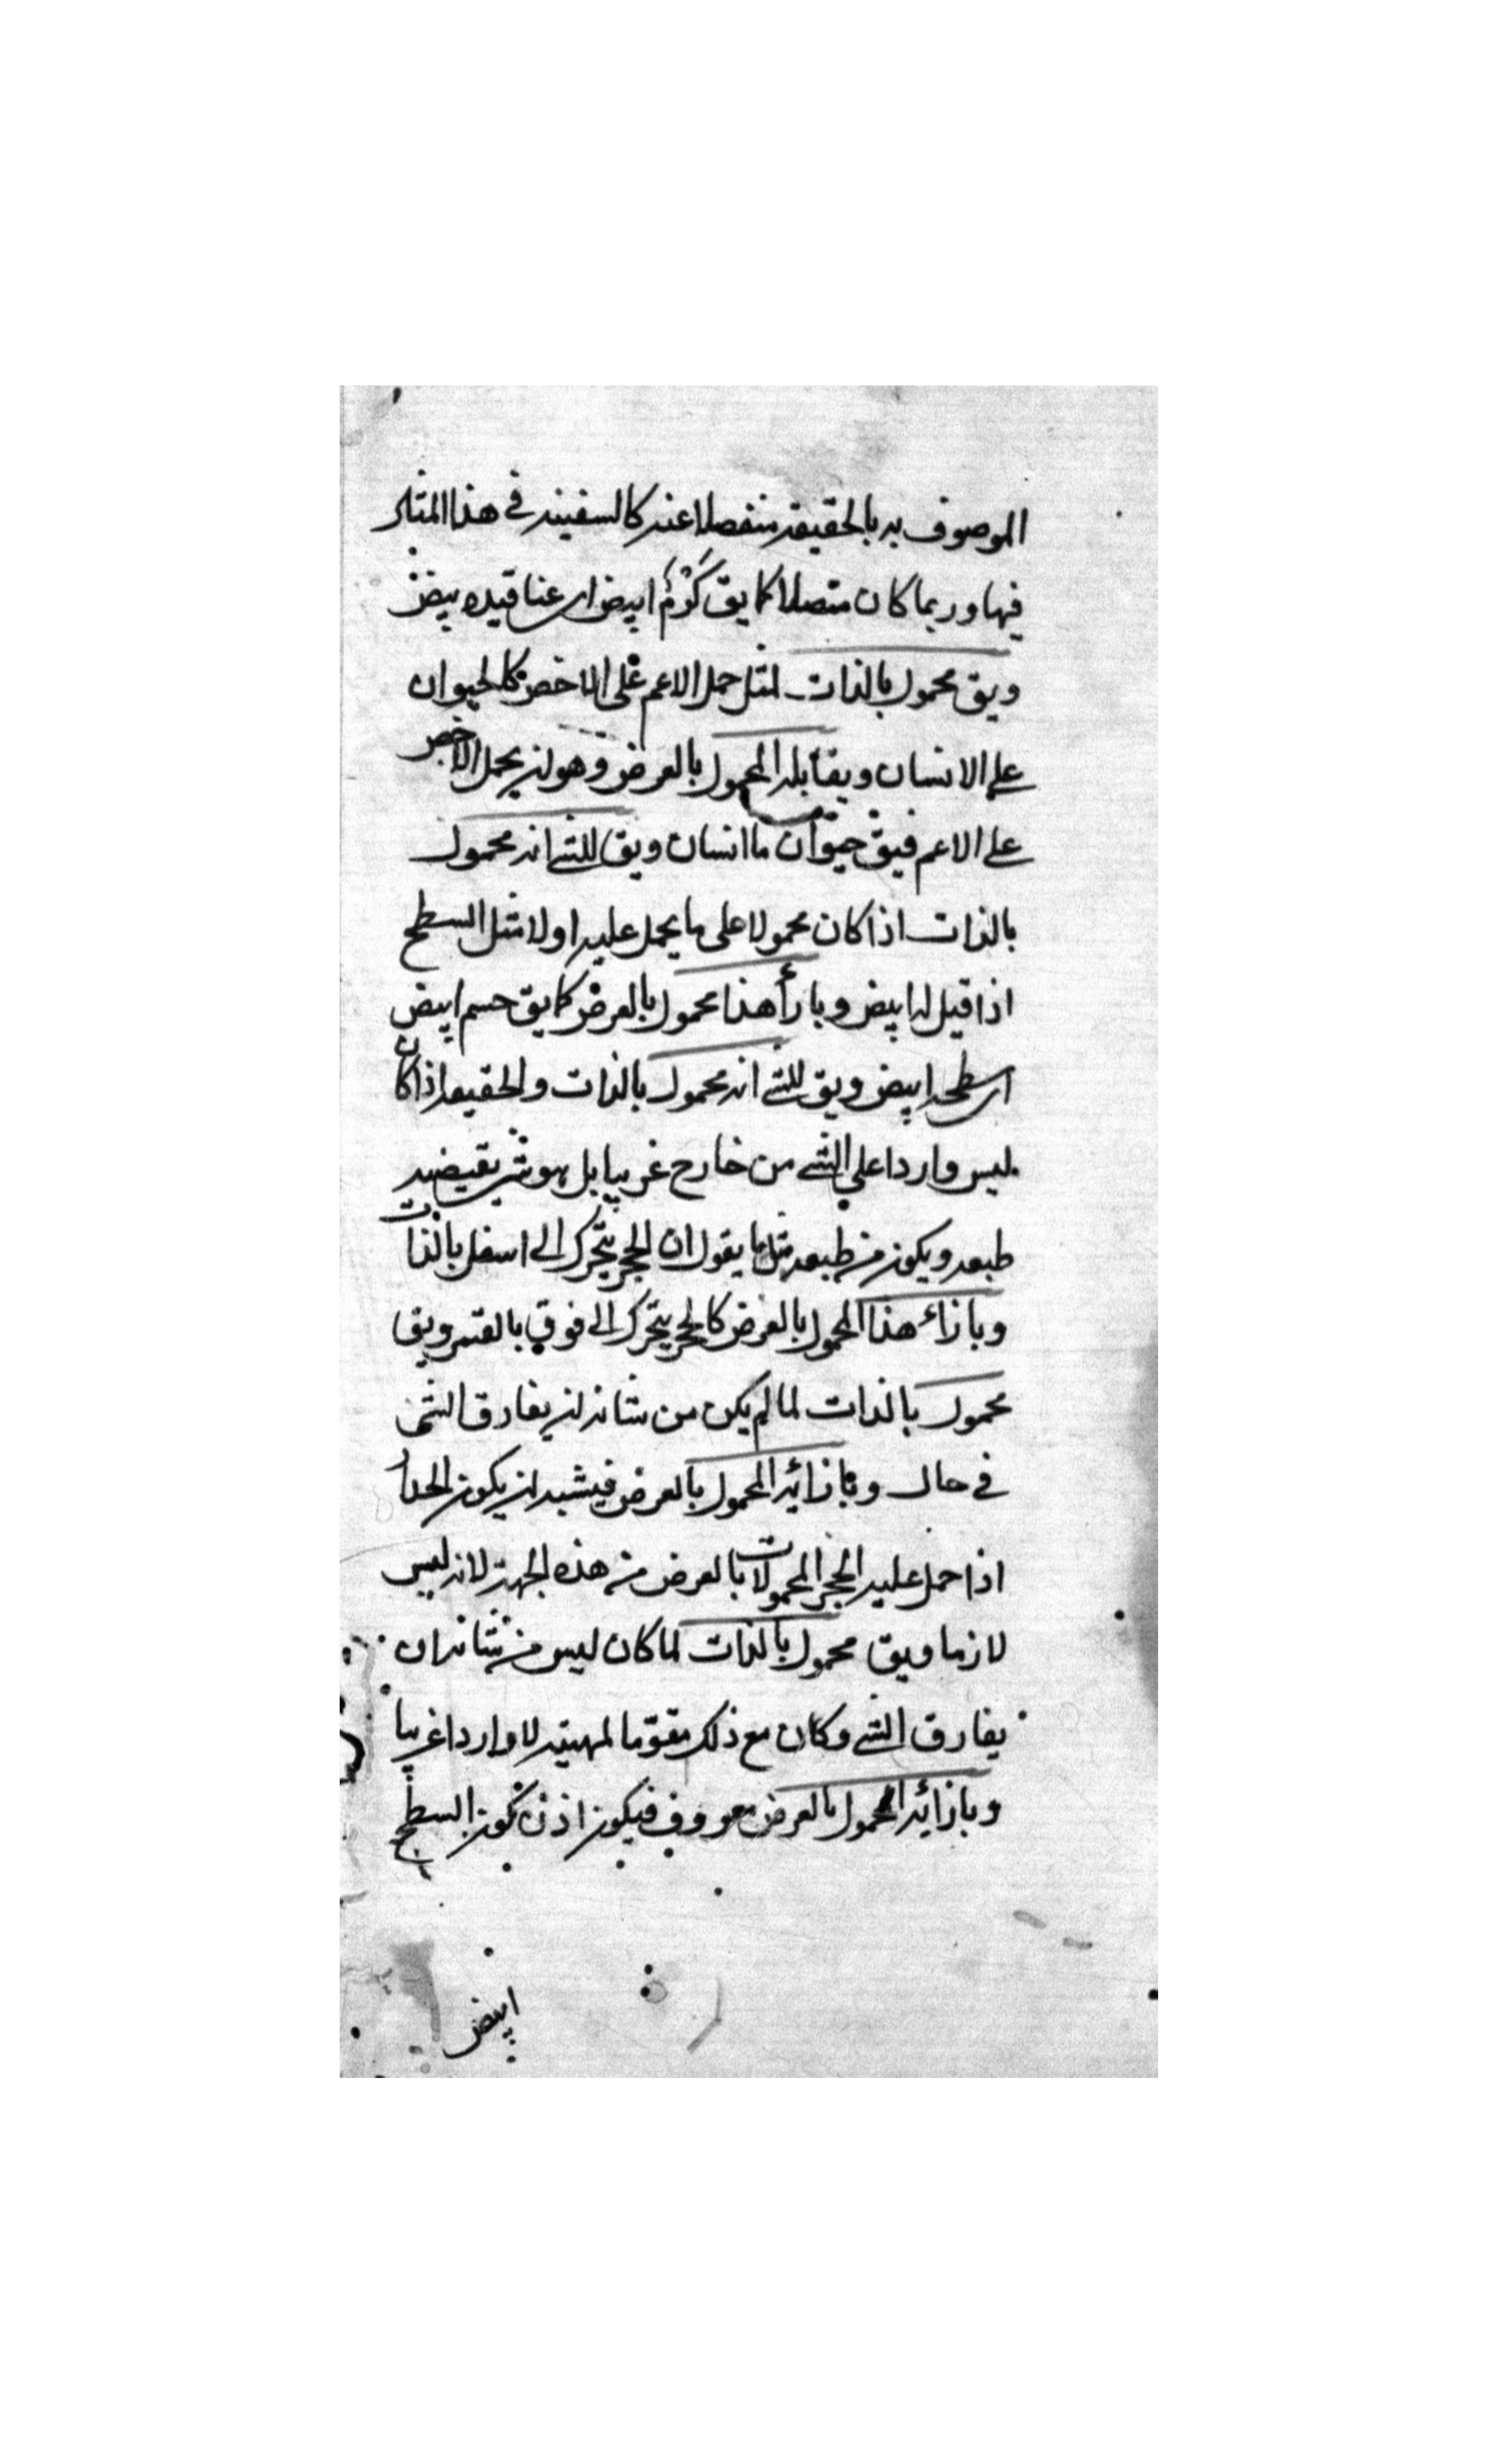 الموصوف به بالحقيقة منفصلا عنه كالسفينة في هذا المثال
فيها وربما كان متصلا كما يق كَرْمٌ ابيض اى عناقيده بيض
ويق محمول بالذات لمثل حمل الاعم على الاخص كالحيوان
على الانسان ويقابله المحمول بالعرض وهو ان يحمل الاخص
على الاعم فيق حيوان ما انسان ويق للشئ انه محمول
بالذات اذا كان محمولا على ما يحمل عليه اولا مثل السطح
اذا قيل له ابيض وبازأ هذا محمول بالعرض كما يق جسم ابيض
اى سطحه ابيض ويق للشئ انه محمول بالذات والحقيقه اذا كان
ليس واردا على الشئ من خارج غريبا بل هو شئ يقتضيه
طبعه ويكون من طبعه مثل ما يقول ان الحجر يتحرك الى اسفل بالذات
وبازاء هذا المحمول بالعرض كالحجر يتحرك الى فوق بالقسر ويق
محمول بالذات لما لم يكن من شانه ان يفارق الشئ
في حال وبازائه المحمول بالعرض فيشبه ان يكون
اذا حمل عليه الحجر المحمولات بالعرض من هذه الجهة لانه ليس
لازما ويق محمول بالذات لما كان ليس من شانه ان
يفارق الشئ وكان مع ذلك مقوّما لمهيته لا واردا غريبا
وبازائه المحمول بالعرض معروف فيكون اذن كون السطح
ابيض